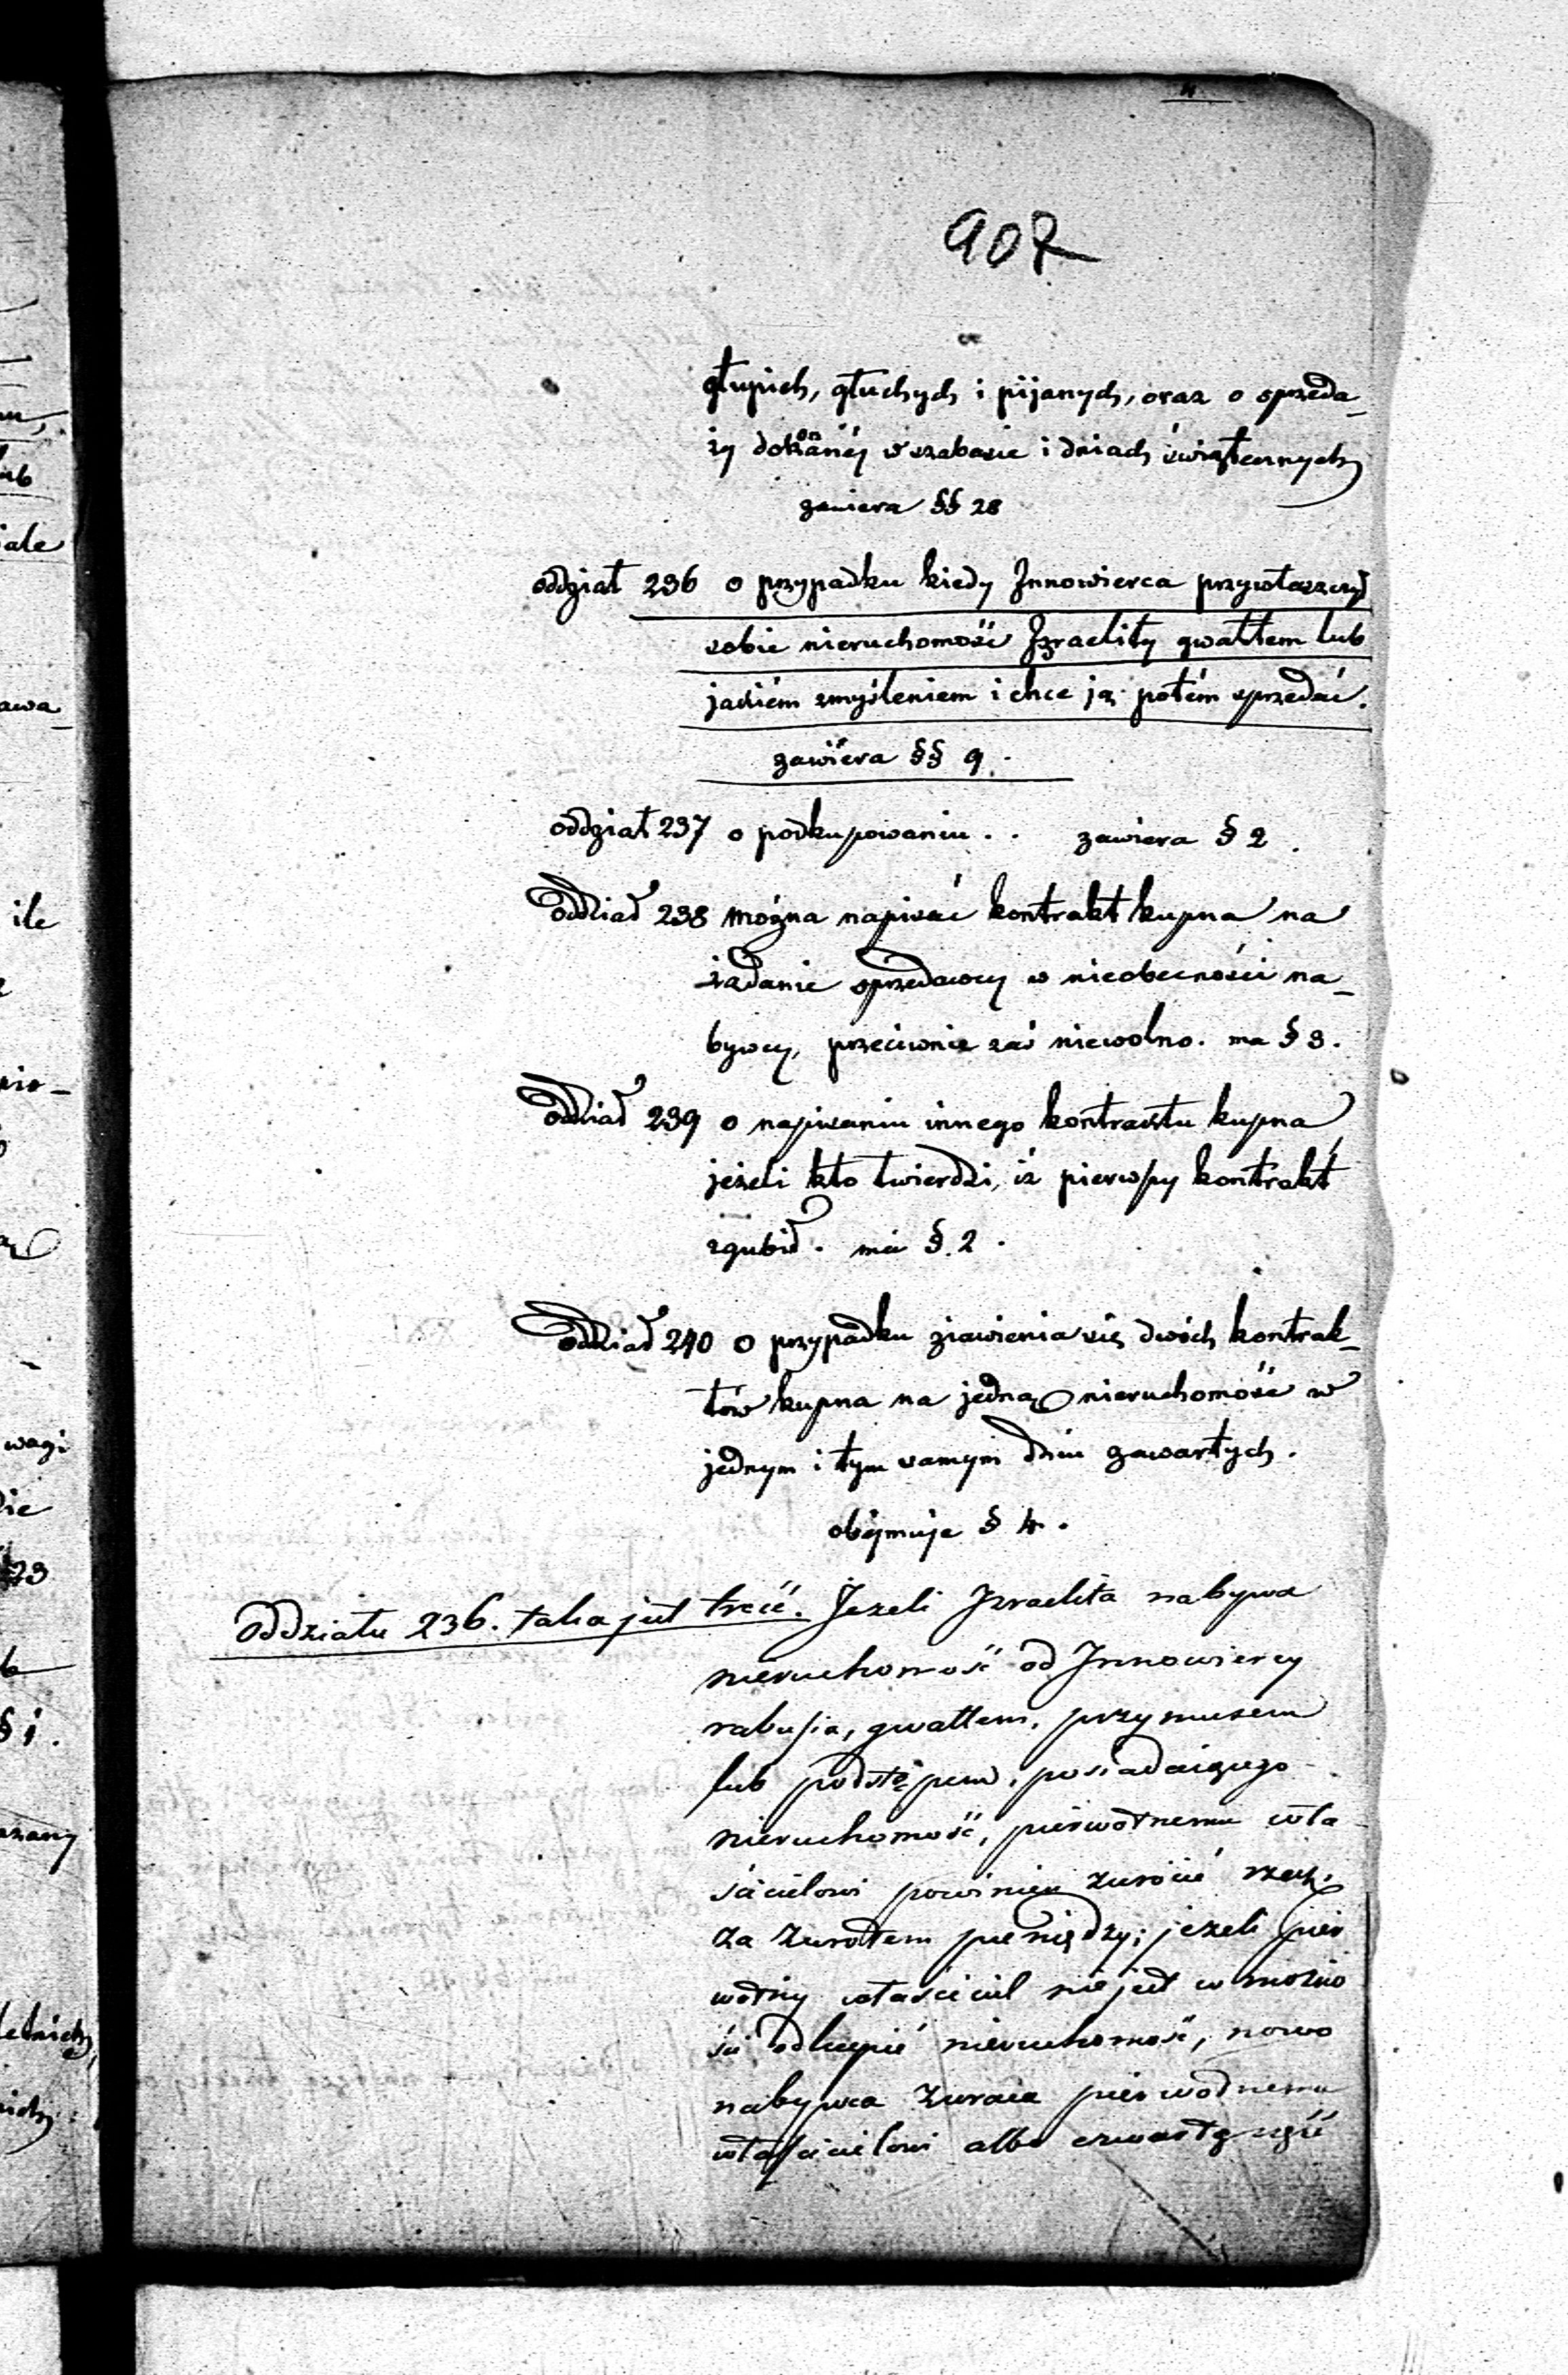 907
głupich, głuchych i pijanych, oraz o sprzeda_
ży dokonanéj w szabasie i dniach świątecznych
zawiera §§ 28
oddział 236 o przypadku kiedy Innowierca przywłaszczył
sobie nieruchomość Izraelity gwałtem lub
jakiém zmyśleniem i chce ją potém sprzedać.
zawiéra §§ 9.
oddział 237 o podkupowaniu . . zawiera § 2.
oddział 238 można napisać kontrakt kupna na
żądanie sprzedawcy w nieobecności na_
bywcy, przeciwnie zaś niewolno. ma § 3.
oddział 239 o napisaniu innego kontraktu kupna
jeżeli kto twierdzi, iż pierwszy kontrakt
zgubił. ma § 2.
oddział 240 o przypadku ziawienia się dwóch kontrak_
tów kupna na jedną nieruchomość w
jednym i tym samym dniu zawartych.
obéjmuje § 4.
Oddziału 236. taka jest treść. Jezeli Izraelita nabywa
nieruchomość od Innowiercy
rabusia, gwałtem, przymusem
lub podstępem, posiadaiącego
nieruchomość, pierwotnemu wła
ścicielowi powinien zwrócić rzecz,
za zwrotem pieniędzy; jezeli pier
wotny właściciel nie jest w możno
ści odkupić nieruchomość, nowo
nabywca zwraca pierwotnemu
właścicielowi albo czwartą część